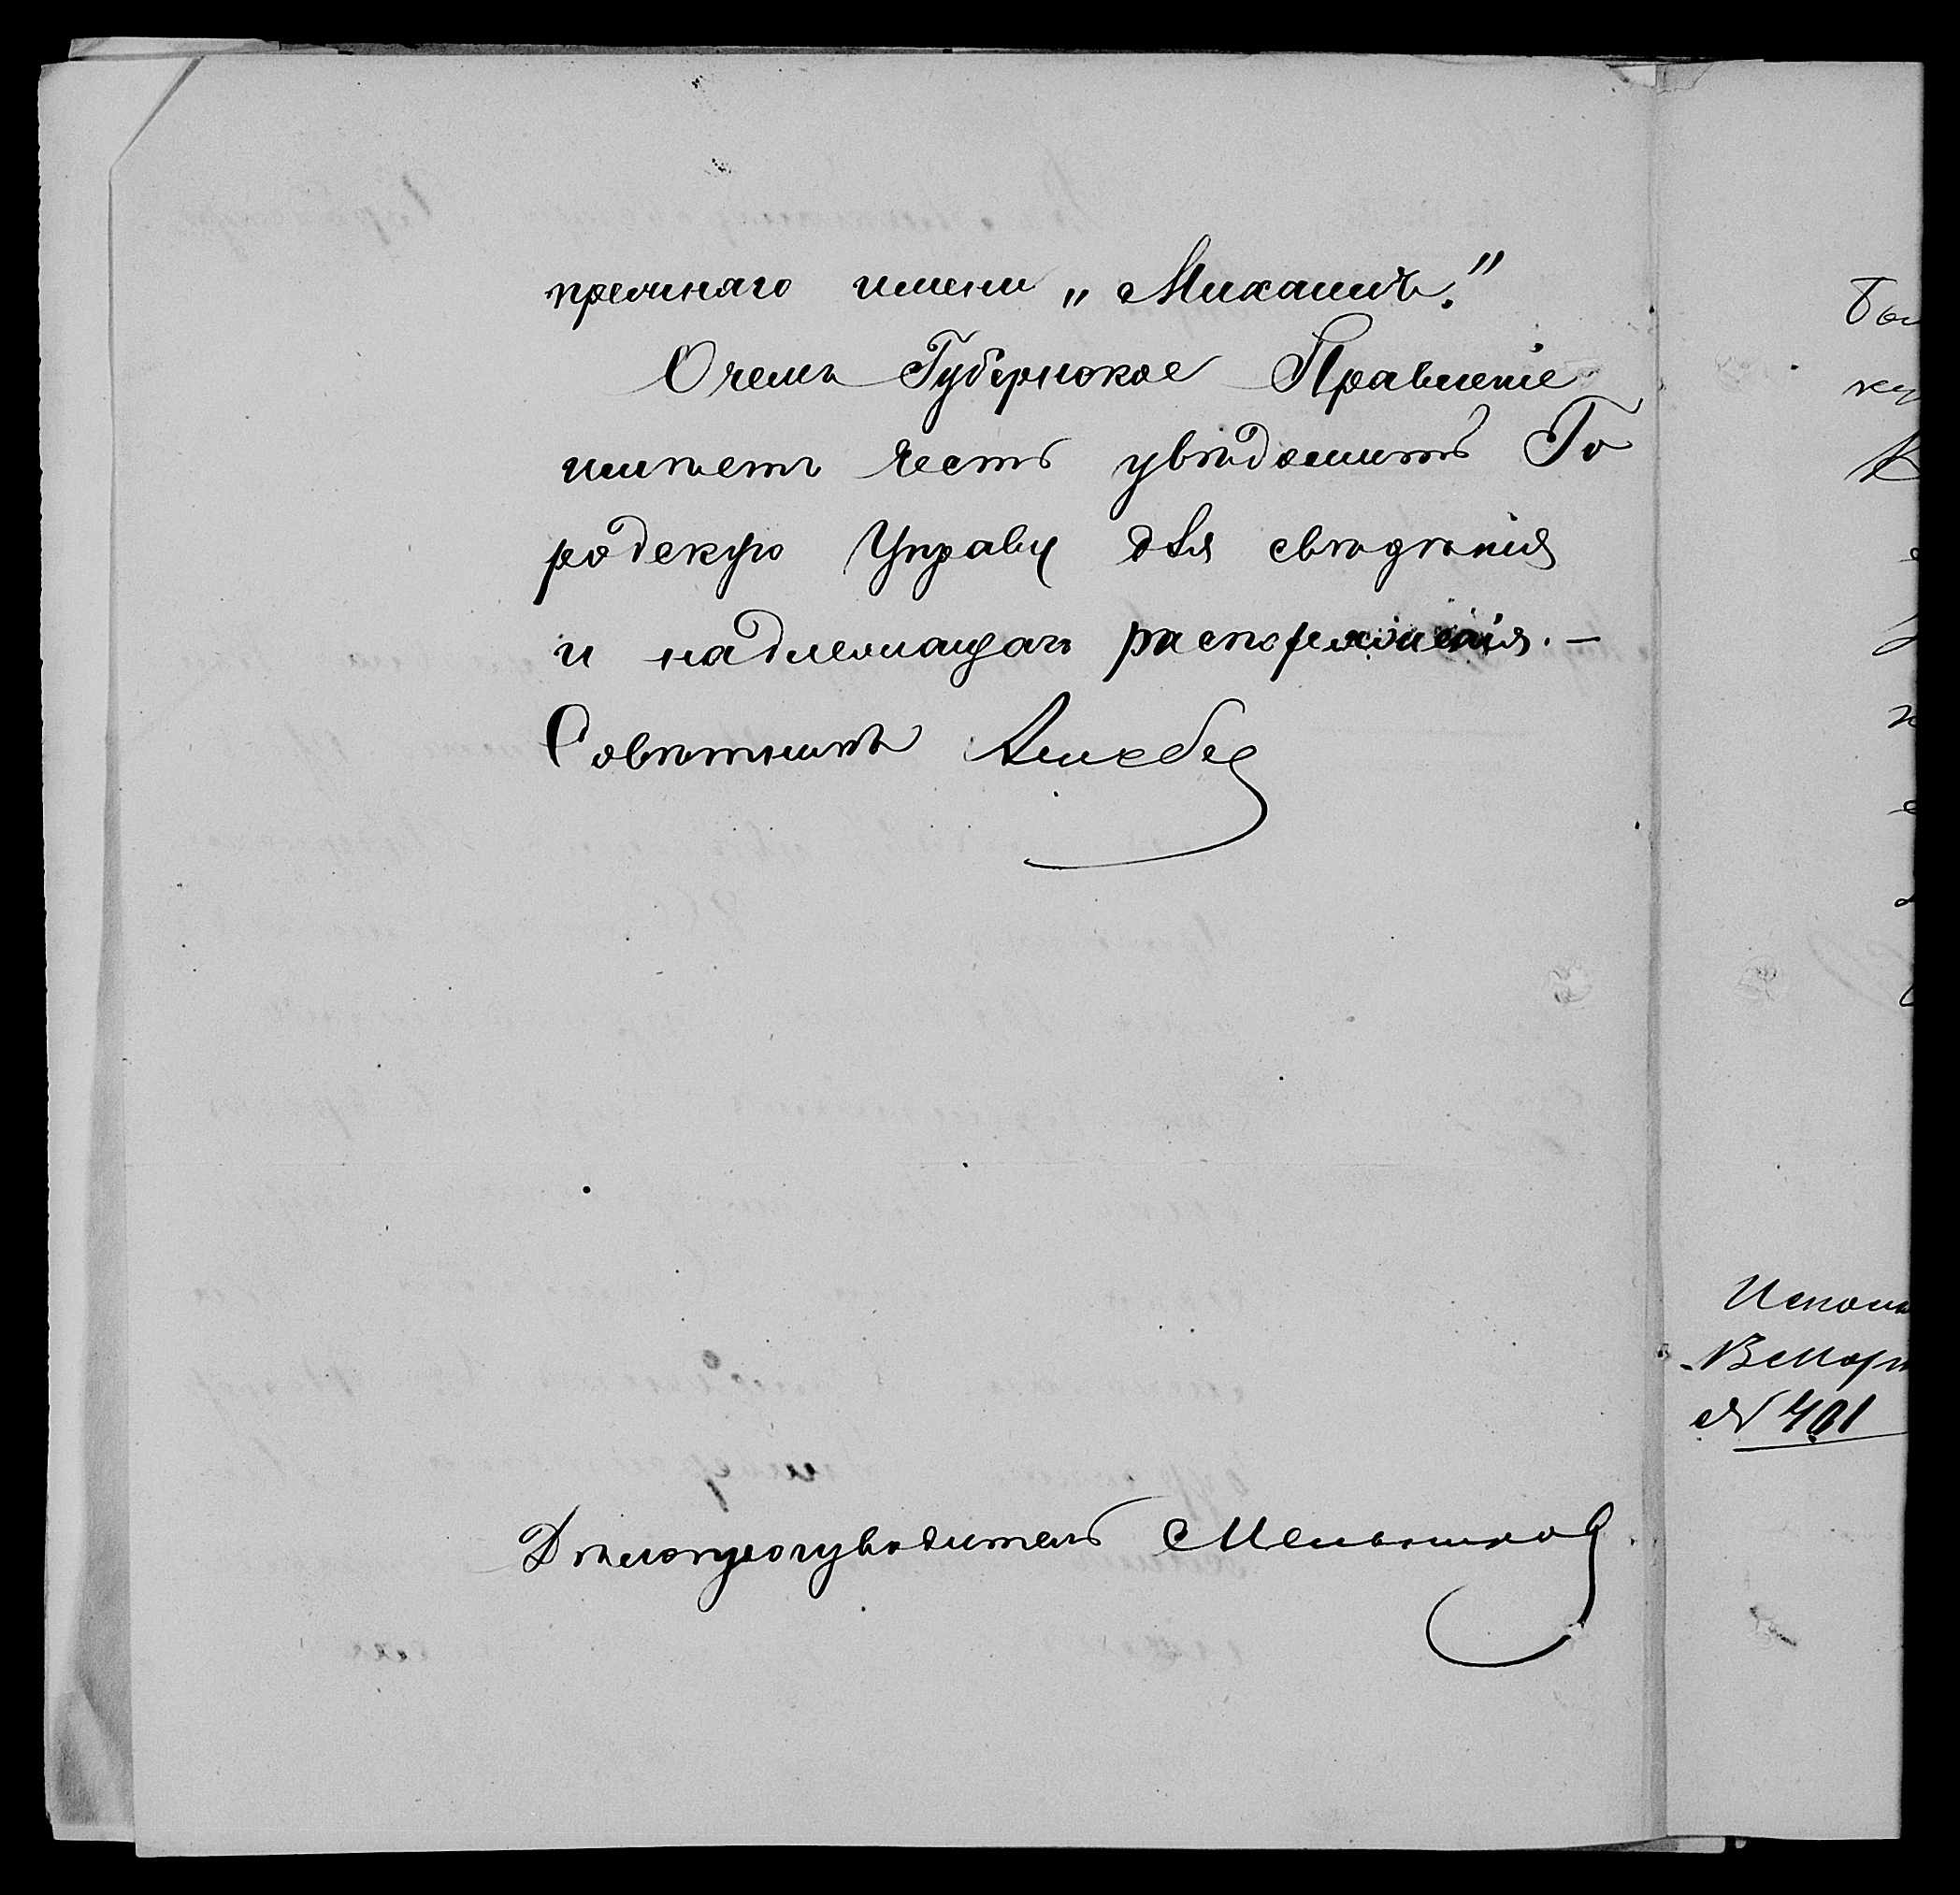 прежняго имени „Михаилъ."
О чемъ Губернское Правленіе
имѣетъ честь увѣдомить Го
родскую Управу для свѣдѣнія
и надлежащаго распоряженія. —
Совѣтникъ
Дѣлопроизводитель Меньшиков
Исполн
№ 401